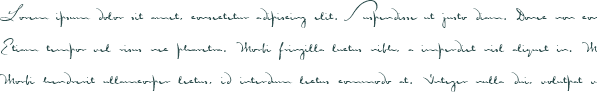 Lorem ipsum dolor sit amet, consectetur adipiscing elit. Suspendisse ut justo diam. Donec non con
Etiam tempor vel risus nec pharetra. Morbi fringilla luctus nibh, a imperdiet nisl aliquet in. M
Morbi hendrerit ullamcorper lectus, id interdum lectus commodo at. Integer nulla dui, volutpat v